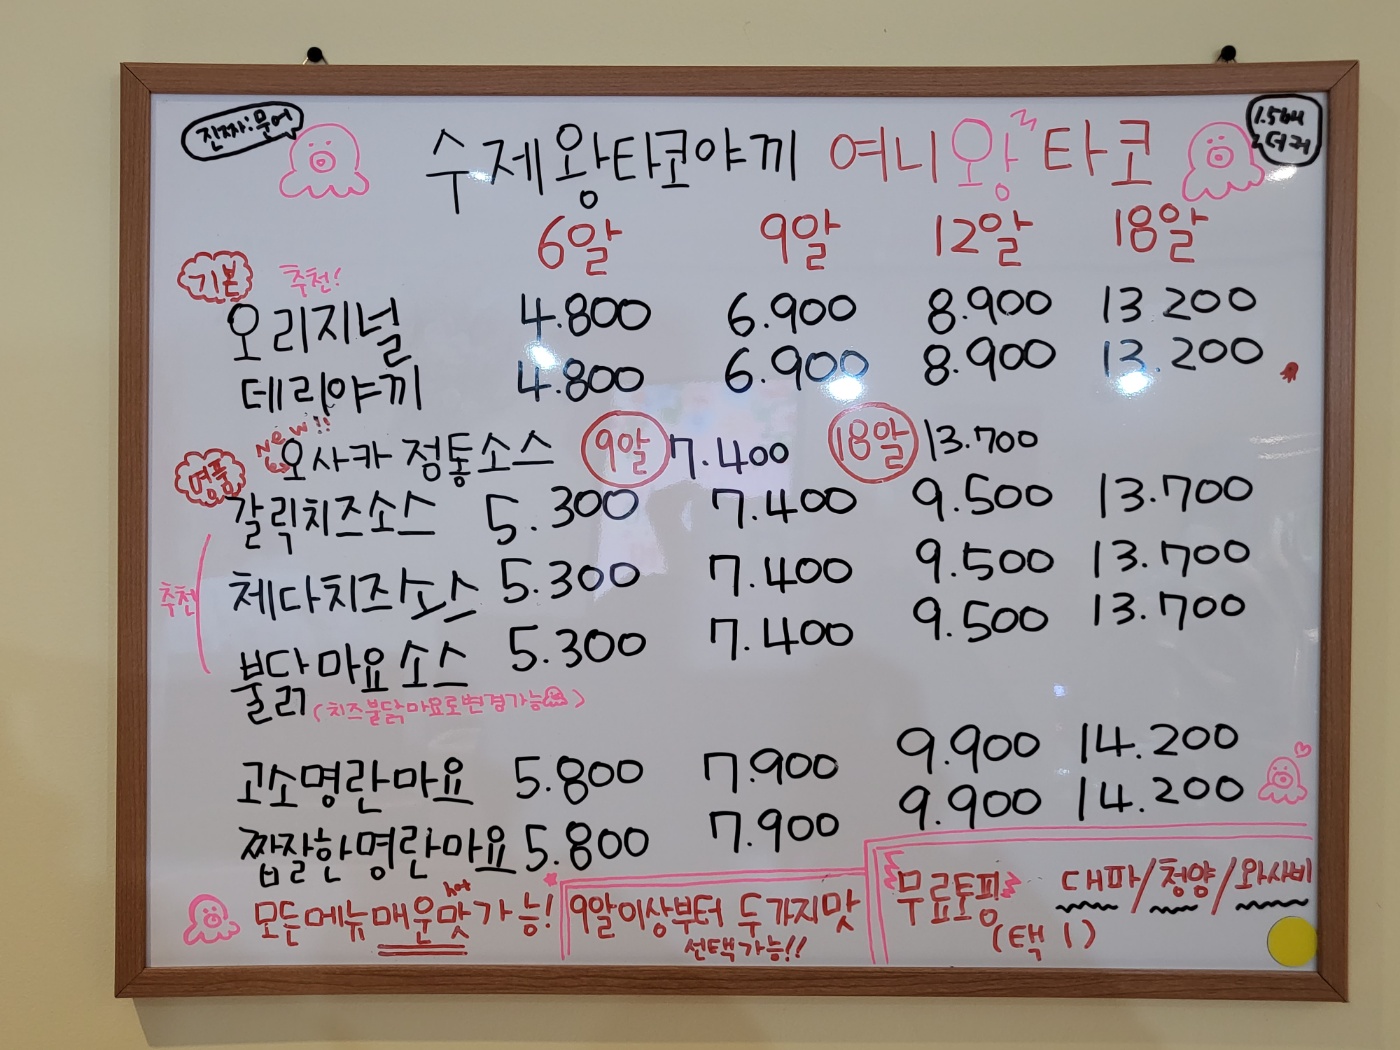 진짜문어
수제왕타코야끼 여니왕타코
1.5배 더커
6알 9알 12알 18알
기본 추천!
오리지널 4.800 6.900 8.900 13.200
데리야끼 4.800 6.900 8.900 13.200
New!!
명품 오사카 정통소스 9알 7.400 18알 13.700
갈릭치즈소스 5.300 7.400 9.500 13.700
체다치즈소스 5.300 7.400 9.500 13.700
추천
불닭마요소스 5.300 7.400 9.500 13.700
(치즈불닭마요로변경가능)
고소명란마요 5.800 7.900 9.900 14.200
짭잘한명란마요 5.800 7.900 9.900 14.200
hot
모든메뉴매운맛가능!
9알이상부터 두가지맛
선택가능!!
무료토핑 대파/청양/와사비
(택1)